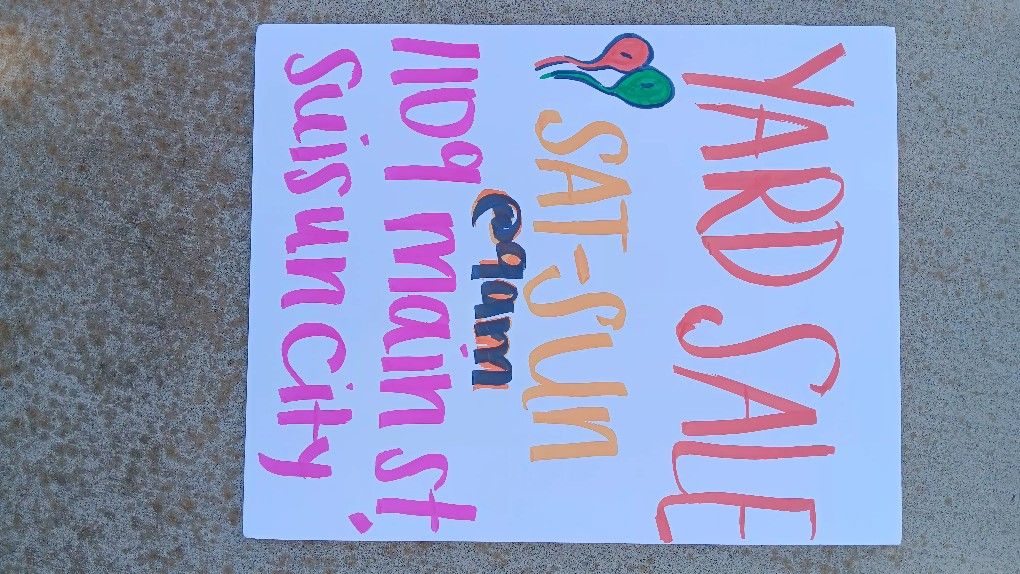 YARD SALE
SAT-SUN
@9am
1109 main st.
Suisun City